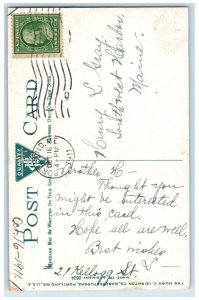 POST CARD
QUALITY
MESSAGE MAY BE WRITTEN ON THIS SIDE
Henry L. Gray
Southwest Harbor,
Maine.
Brother H—
Thought you
might be interested
in this card.
Hope all are well.
Best wishes
L
21 Kellogg St.
THE HUGH C. LEIGHTON CO., MANUFACTURERS, PORTLAND, ME., U.S.A.